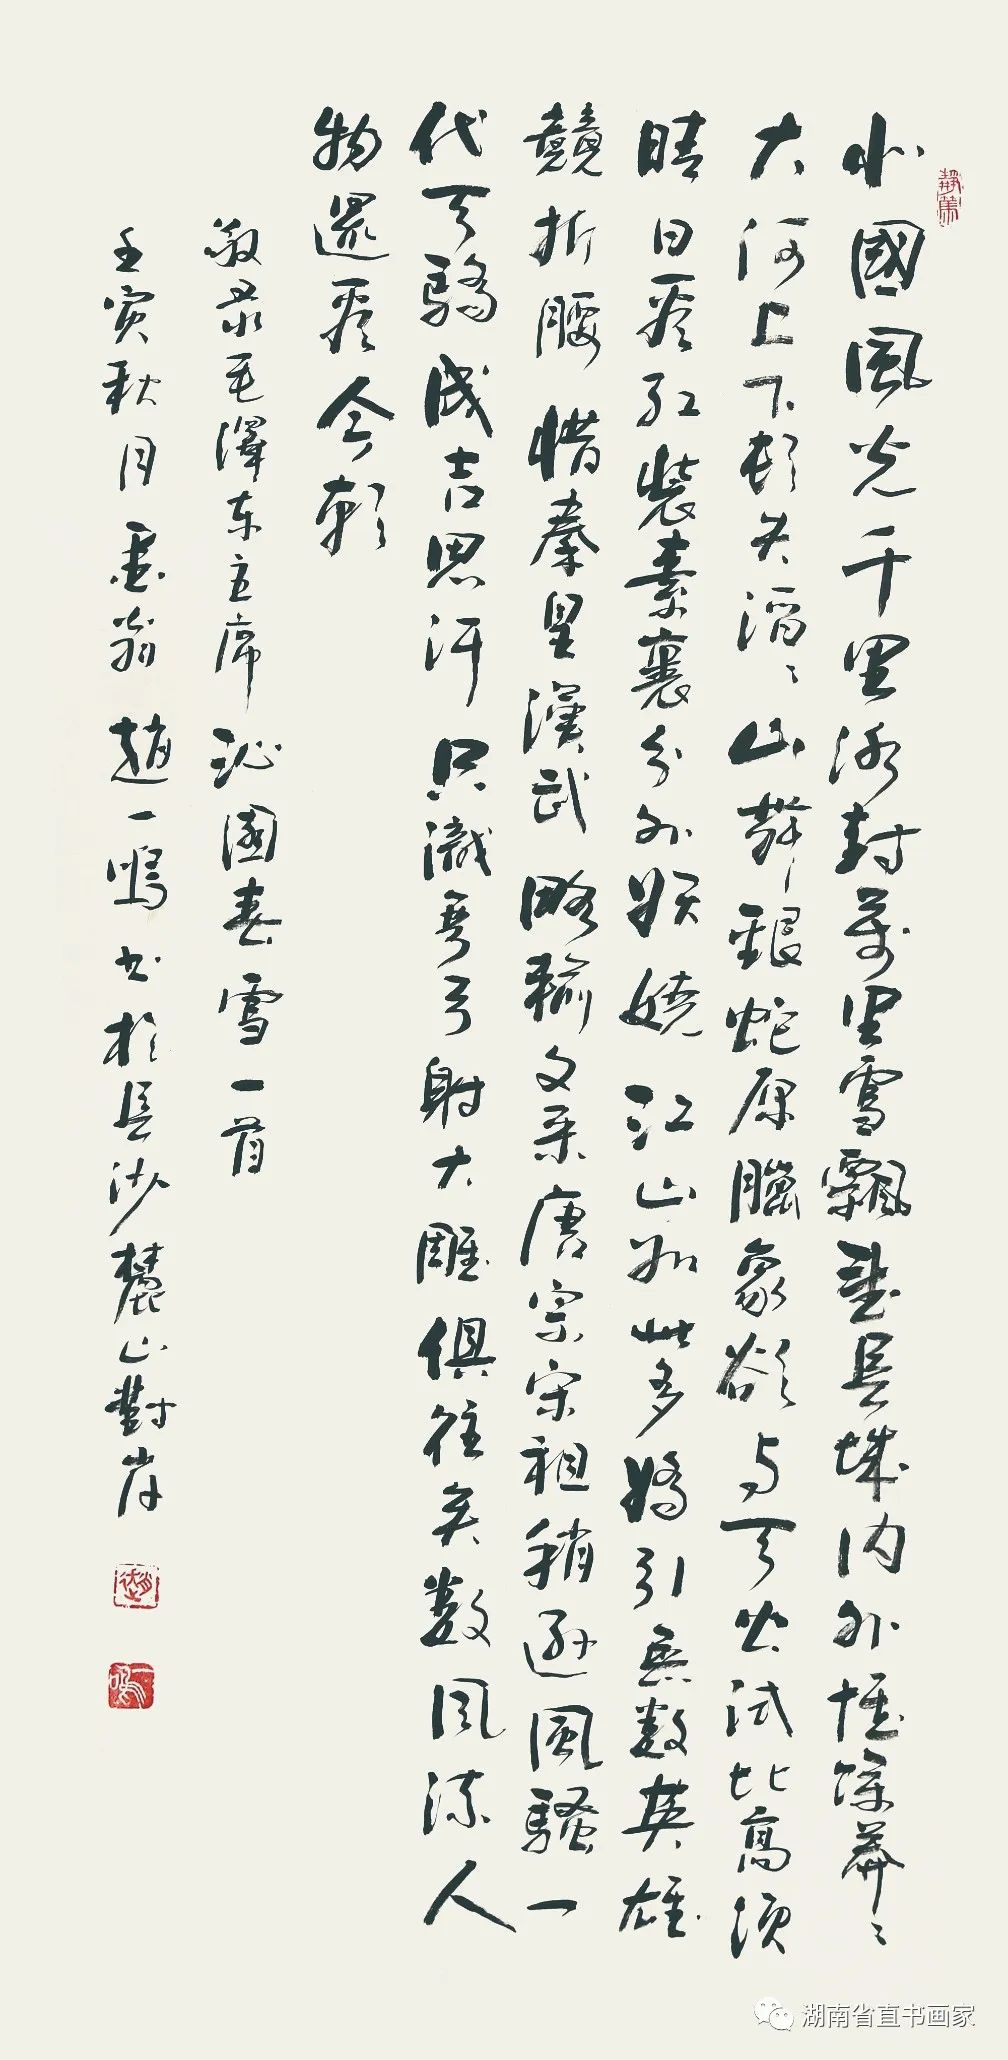 静篤
北國風光千里冰封萬里雪飄望長城内外惟餘莽々
大河上下頓失滔々山舞銀蛇原臘象欲与天公試比高須
晴日看红裝素裹分外妖嬈江山如此多嬌引無數英雄
競折腰惜秦皇漢武略輸文采唐宗宋祖稍遜風騷一
代天驕成吉思汗只識彎弓射大雕俱往矣數風流人
物還看今朝
敬录毛澤东主席沁園春雪一首
壬寅秋月翁趙一鳴书於長沙麓山對岸
趙
一鳴
湖南省直书画家